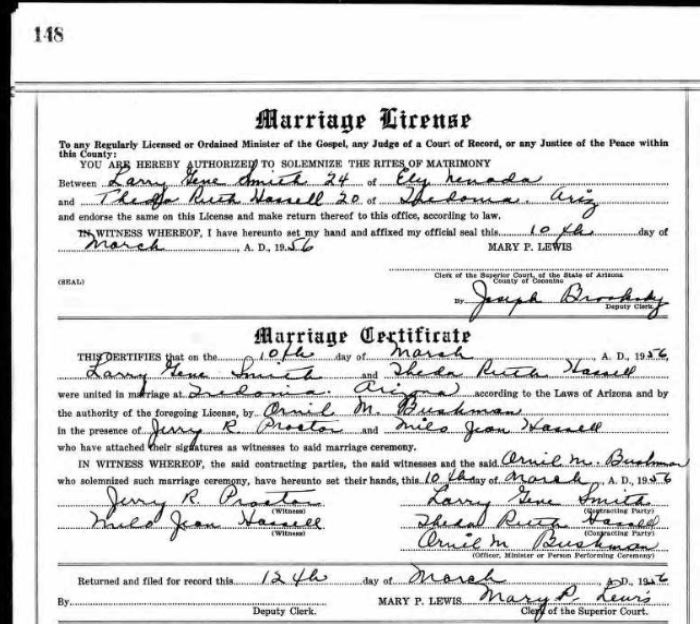 148
Marriage License
To any Regularly Licensed or Ordained Minister of the Gospel, any Judge of a Court of Record, or any Justice of the Peace within
this County:
YOU ARE HEREBY AUTHORIZED TO SOLEMNIZE THE RITES OF MATRIMONY
Between Larry Gene Smith 24 of Ely Nevada
and Theda Ruth Hassell 20 of Ariz
and endorse the same on this License and make return thereof to this office, according to law.
IN WITNESS WHEREOF, I have hereunto set my hand and affixed my official seal this 10th day of
March, A. D., 1956 MARY P. LEWIS
Clerk of the Superior Court, of the State of Arizona
(SEAL) County of Coconino
By Joseph
Deputy Clerk.
Marriage Certificate
THIS CERTIFIES that on the 10th day of March, A. D., 1956,
Larry Gene Smith and Theda Ruth Hassell
were united in marriage at Fredonia. Arizona according to the Laws of Arizona and by
the authority of the foregoing License, by Orvil M. Bushman
in the presence of Jerry R. Proctor and Milo Jean Hassell
who have attached their signatures as witnesses to said marriage ceremony.
IN WITNESS WHEREOF, the said contracting parties, the said witnesses and the said Orvil M. Bushman
who solemnized such marriage ceremony, have hereunto set their hands, this 10th day of March, A. D., 1956
Jerry R. Proctor Larry Gene Smith
(Witness) (Contracting Party)
Milo Jean Hassell Theda Ruth Hassell
(Witness) (Contracting Party)
Orvil M Bushman
(Officer, Minister or Person Performing Ceremony)
Returned and filed for record this 12th day of March A. D., 1956
By MARY P. LEWIS Mary P. Lewis
Deputy Clerk. Clerk of the Superior Court.